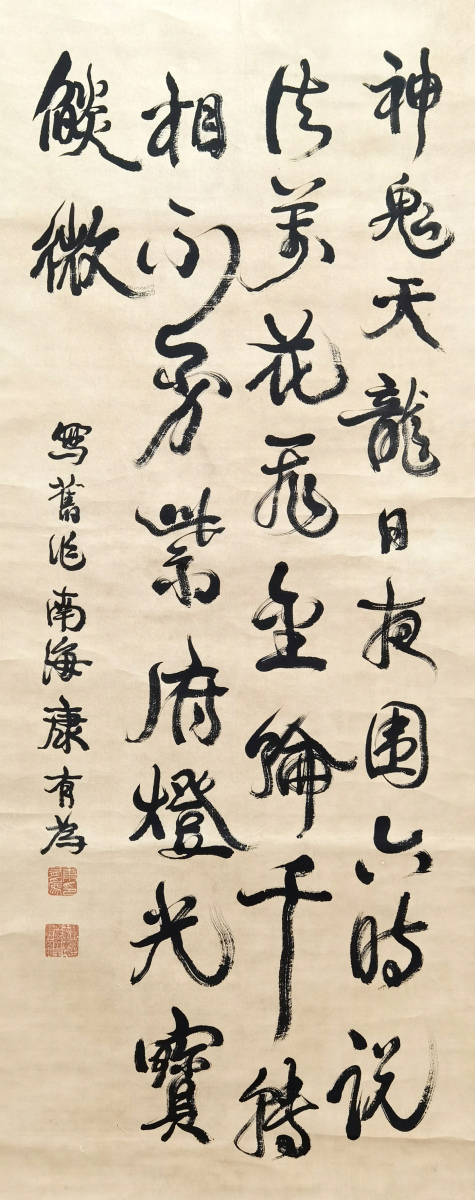 神鬼天龍日夜圍六時說
法萬花飛金輪千轉
相不紫府燈光寶
燄微
寫舊作南海康有為